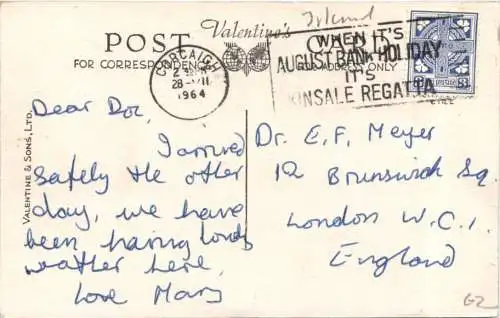 Ireland
Valentine's
POST CARD
FOR CORRESPONDENCE
FOR ADDRESS ONLY
CORCAIGH
28 VII
1964
WHEN IT'S
AUGUST BANK HOLIDAY
IT'S
KINSALE REGATTA
EIRE
VALENTINE & SONS, LTD.
Dear Doc,
I arrived
safely the other
day, we have
been having lovely
weather here,
Love Mary
Dr. E. F. Meyer
12 Brunswick Sq.
London W.C.1.
England